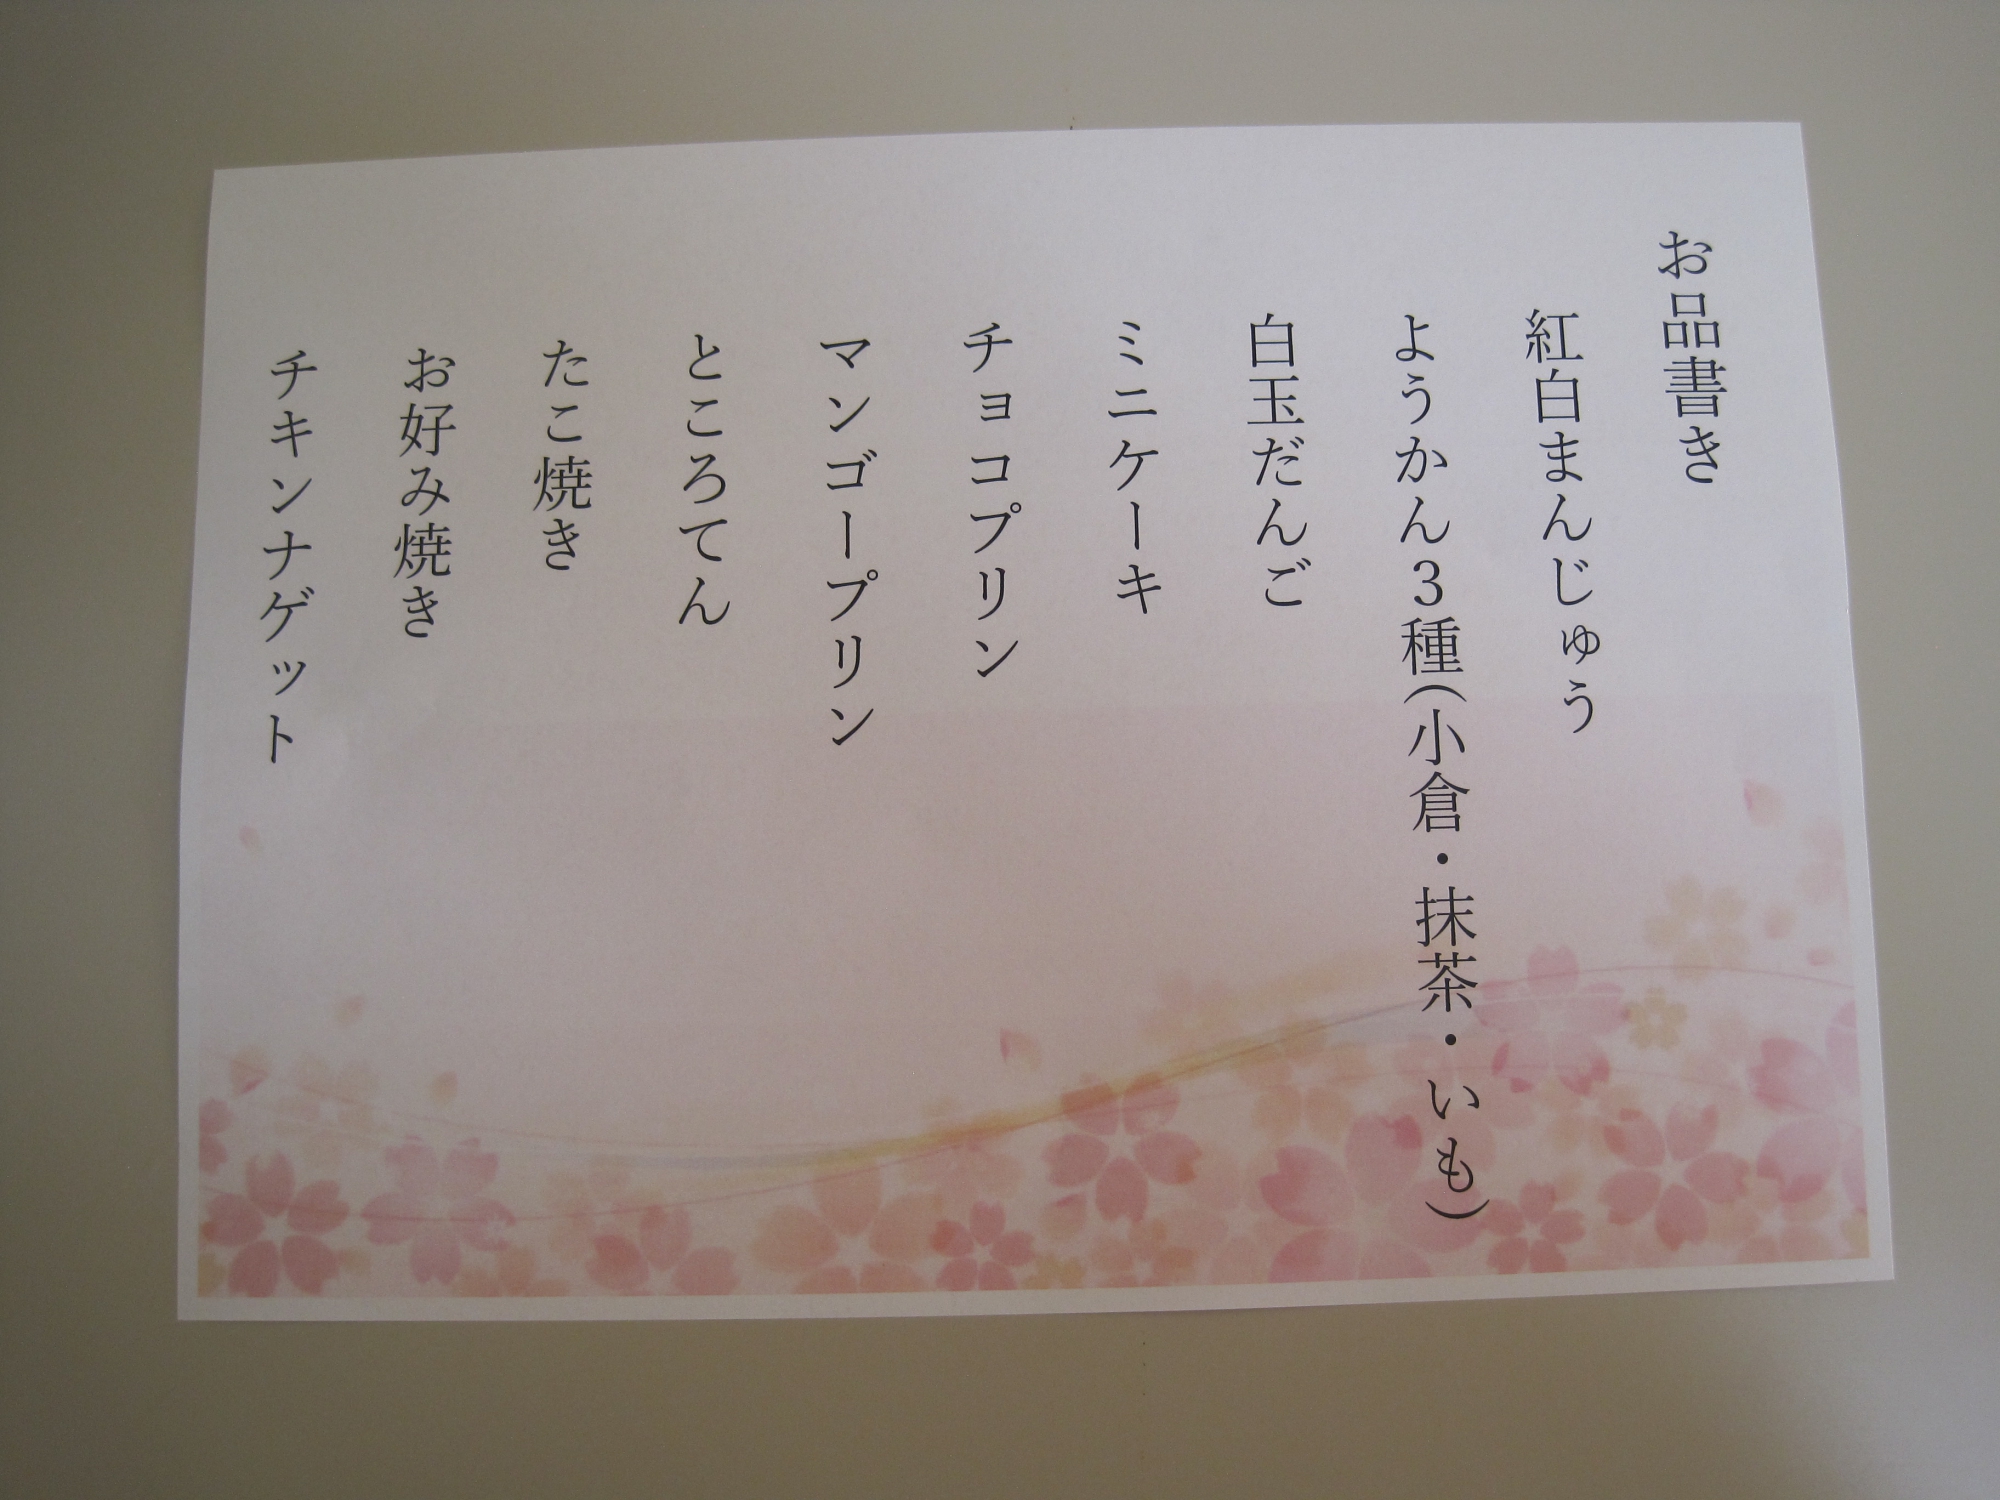 お品書き
紅白まんじゅう
ようかん３種(小倉・抹茶・いも)
白玉だんご
ミニケーキ
チョコプリン
マンゴープリン
ところてん
たこ焼き
お好み焼き
チキンナゲット